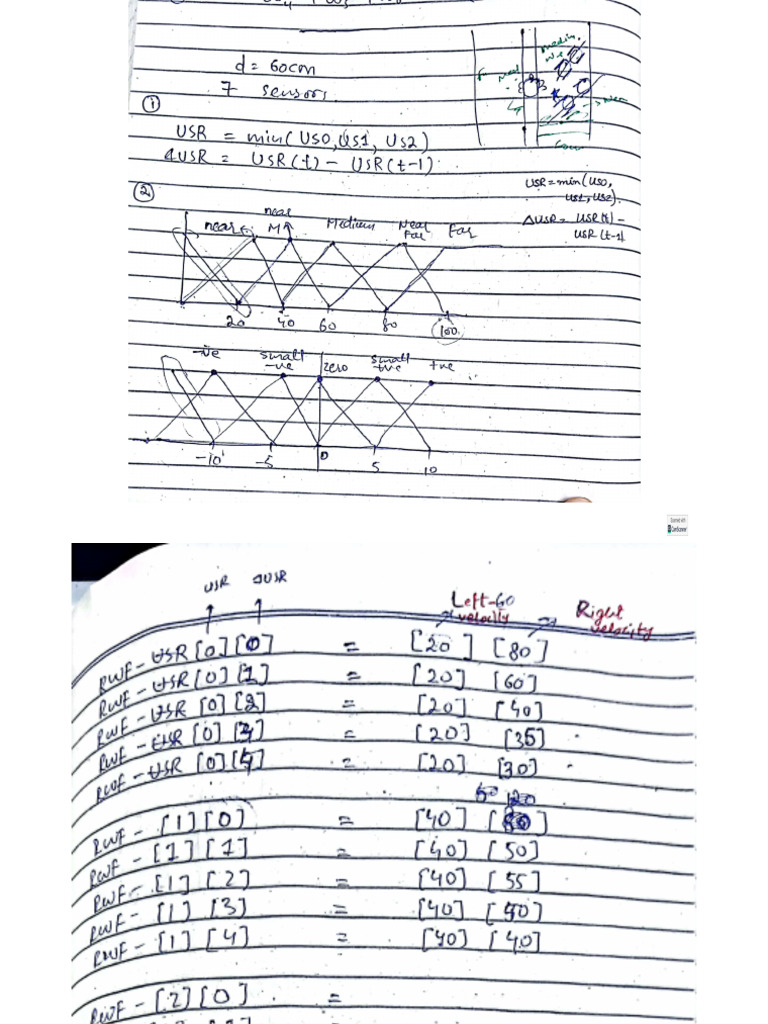 d = 60cm
7 sensors.
①
USR = min(US0, US1, US2)
ΔUSR = USR(t) - USR(t-1)
②
USR = min(US0,
US1, US2).
ΔUSR = USR(t) -
USR(t-1)
near near M Medium Near Far Far
20 40 60 80 100
-ve small -ve zero small +ve +ve
-10 -5 0 5 10
Scanned with
CamScanner
USR ΔUSR
Left-60 velocity Right velocity
RWF - USR [0][0] = [20] [80]
RWF - USR [0][1] = [20] [60]
RWF - USR [0][2] = [20] [40]
RWF - USR [0][3] = [20] [35]
RWF - USR [0][4] = [20] [30]
120
RWF - [1][0] = [40]
RWF - [1][1] = [40] [50]
RWF - [1][2] = [40] [55]
RWF - [1][3] = [40] [50]
RWF - [1][4] = [40] [40]
RWF - [2][0] =